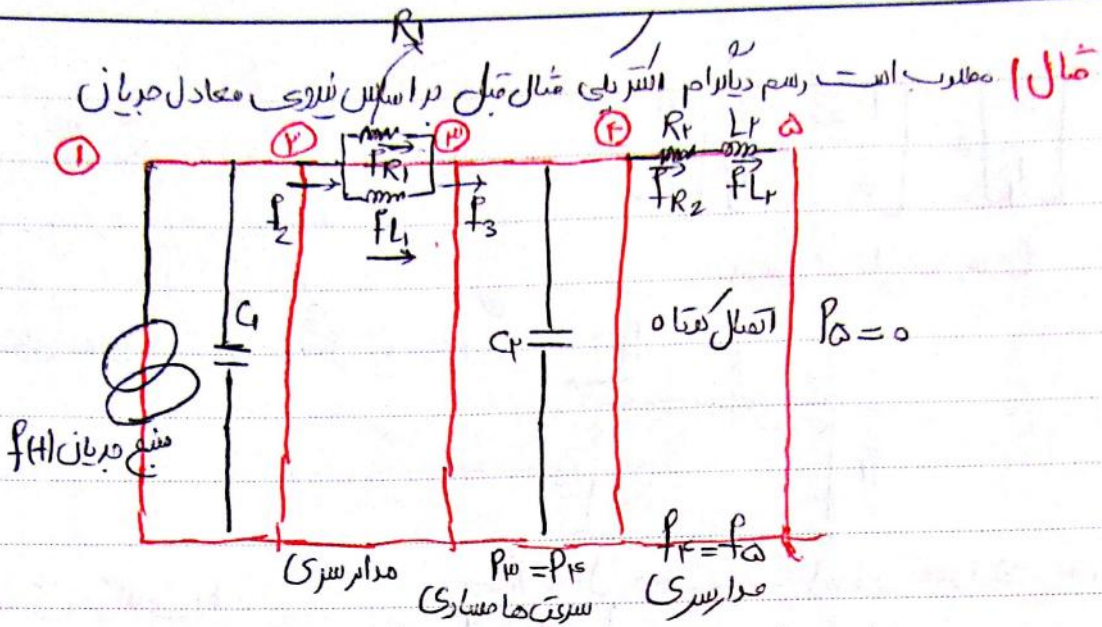 مثال| مطلوب است رسم دیاگرام الکتریکی مثال قبل بر اساس نیروی معادل جریان
R1
① ② ③ ④ ۵
fR1
R۲ L۲
f2 f3
fR2 fL۲
fL1
C1
C۲
اتصال کوتاه
P۵ = ۰
منبع جریان f(t)
مدار سری
P۳ = P۴
f۴ = f۵
سرعت‌ها مساوی
مدار سری